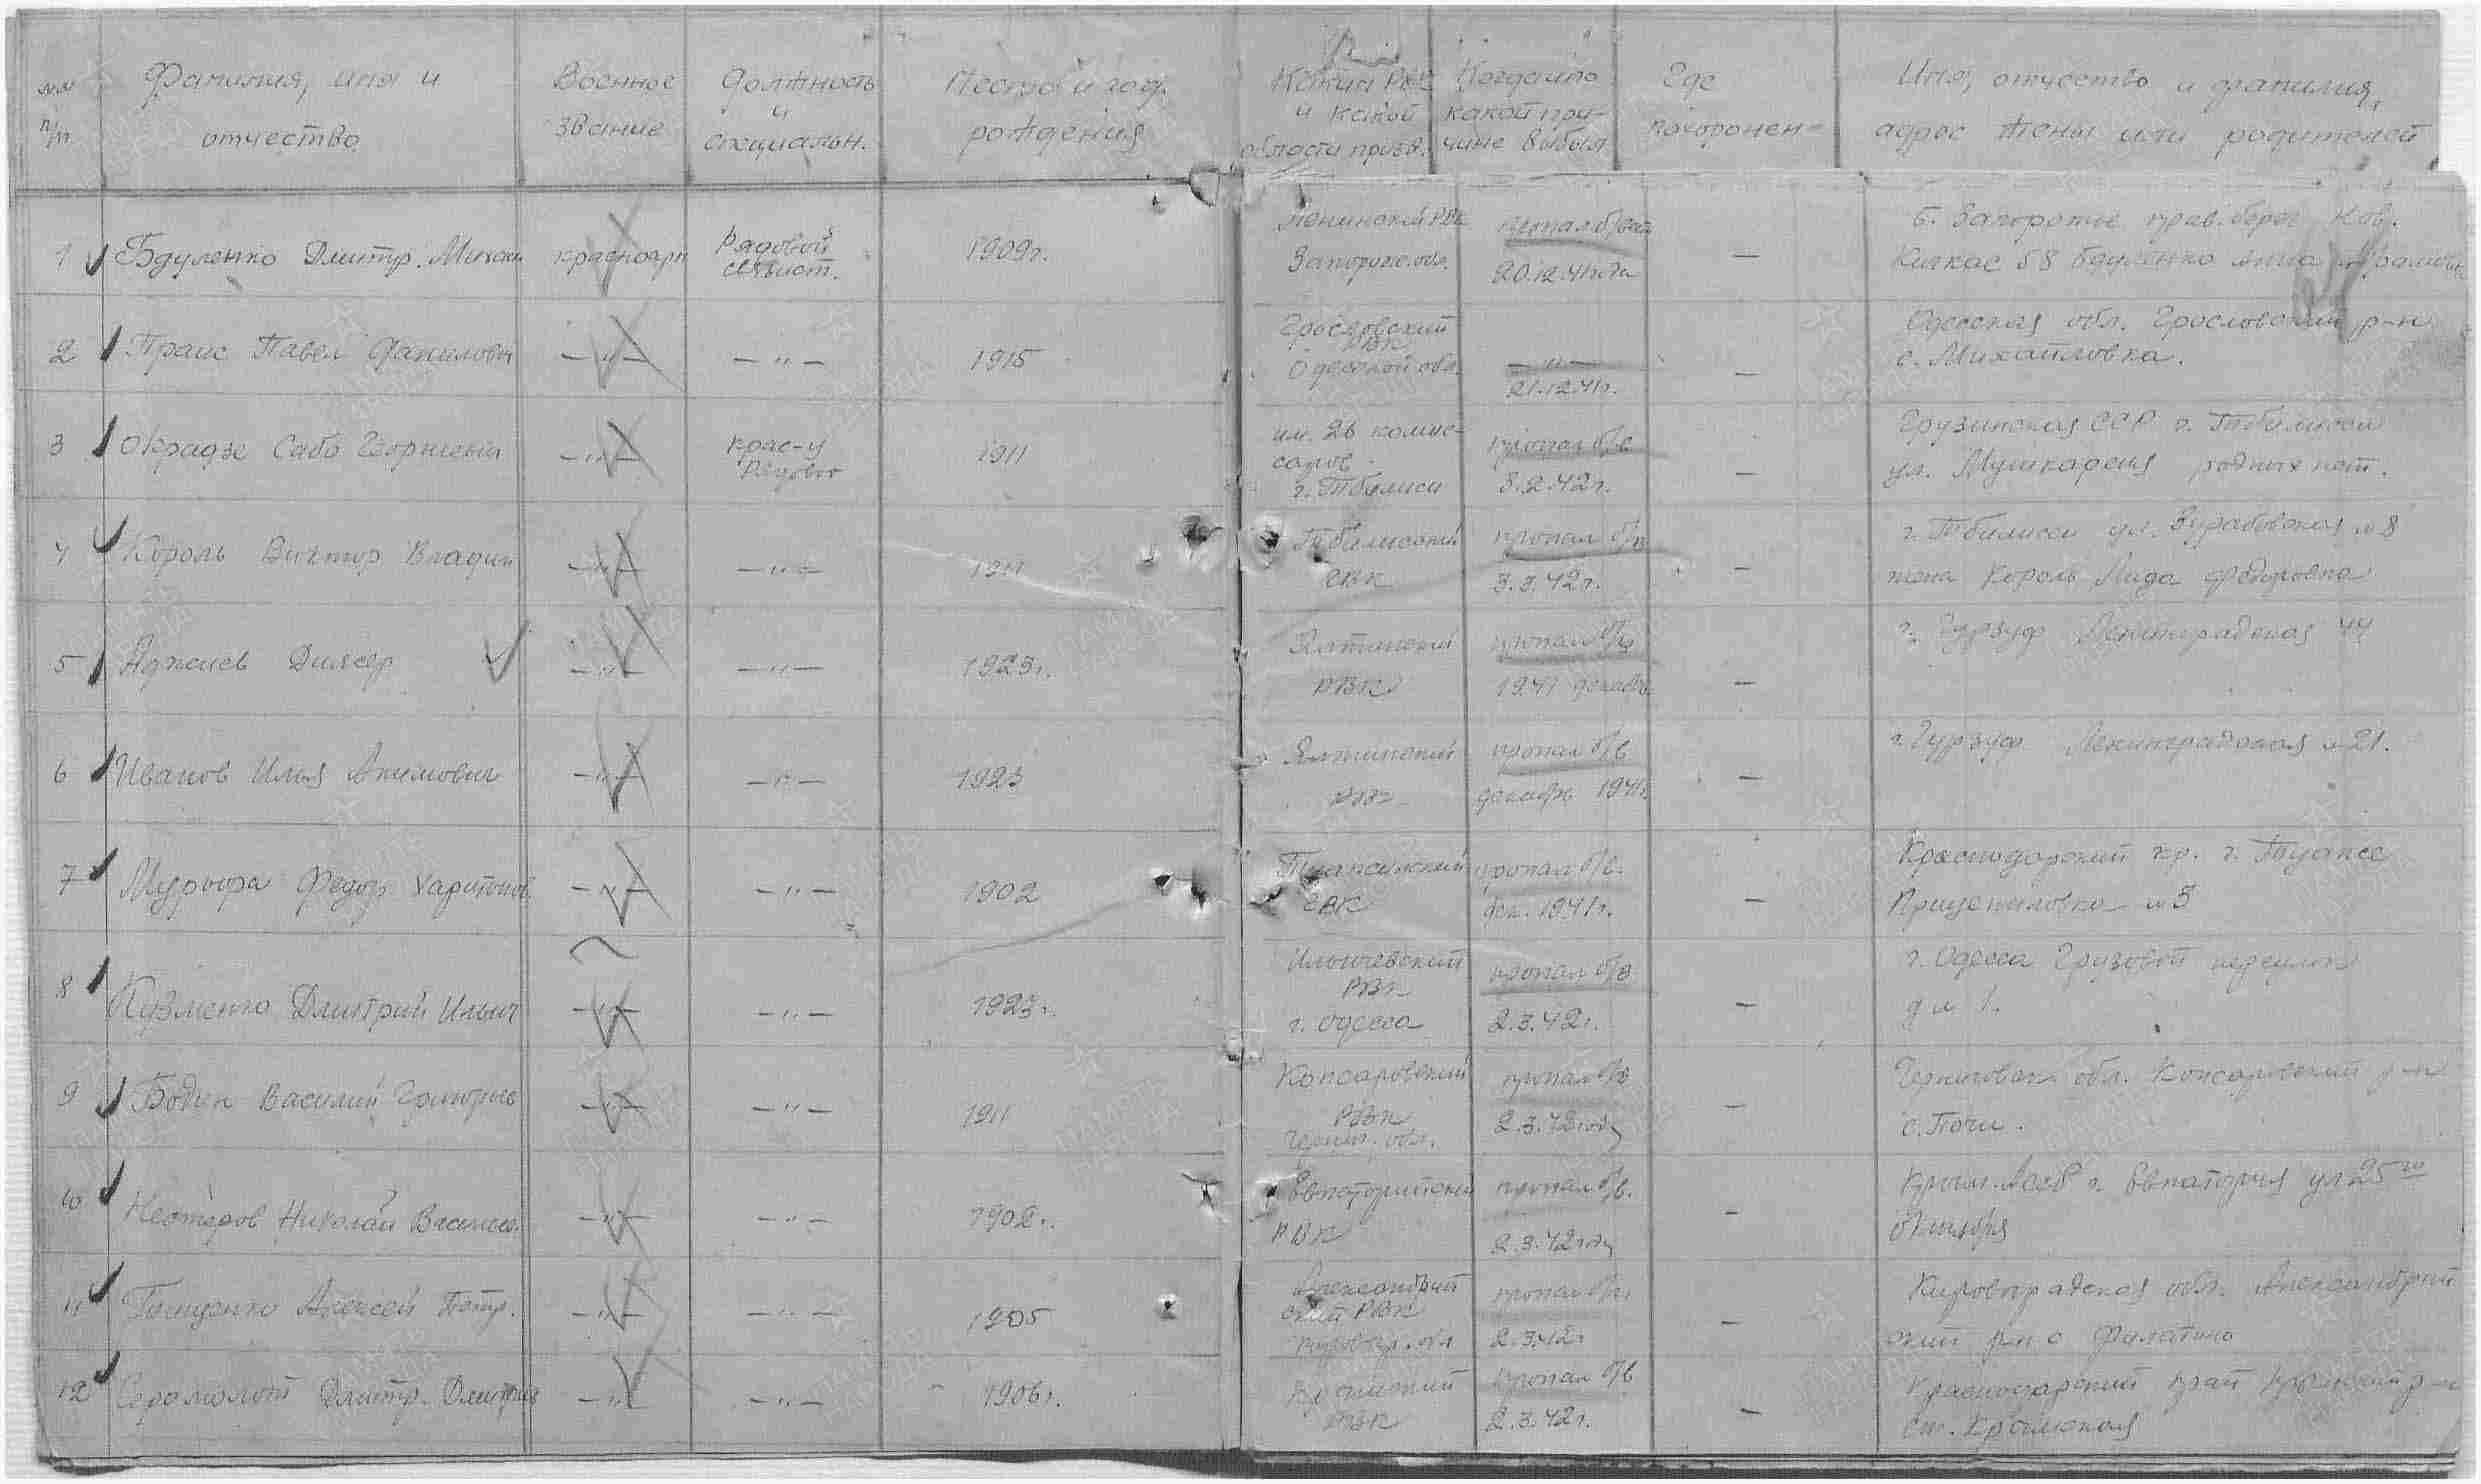 №№ п/п
Фамилия, имя и отчество
Военное звание
Должность и специальн.
Место и год рождения
Каким РВК и какой области призв.
Когда и по какой причине выбыл
Где похоронен
Имя, отчество и фамилия, адрес жены или родителей
1 Бдуленко Дмитр. Михаи красноарм Рядовой связист. 1909г.
Ленинский РВК Запорож. обл.
пропал б/вести 20.12.41года
—
г. Запорожье прав. берег Нов. Кичкас 58 Бдуленко Анна
2 Праис Павел Данилович —"— —"— 1915
Грословский РВК Одесской обл.
—"— 21.12.41г.
—
Одесская обл. Грословский р-н
с. Михайловка.
3 Окрадзе Сабо Георгиевич —"— крас-ц Рядовой 1911
им. 26 комиссаров г. Тбилиси
пропал б/в 3.2.42г.
—
Грузинская ССР г. Тбилисси
ул. родных нет.
4 Король Виктор Владим —"— —"— 1911
Тбилисский СВК
пропал б/в 3.3.42г.
—
г. Тбилисси ул. Зурабовская №8
жена Король Лида Федоровна
5 Аджиев Дилявер —"— —"— 1923г.
Ялтинский РВК
пропал б/в 1941 декабрь
—
г. Гурзуф Ленинградская 44
6 Иванов Илья Акимович —"— —"— 1923
Ялтинский РВК
пропал б/в декабрь 1941г.
—
г. Гурзуф Ленинградская №21.
7 Федор Харитонов —"— —"— 1902
Туапсинский СВК
пропал б/в. дек. 1941г.
—
Краснодарский кр. г. Туапсе
№3
8 Кузменко Дмитрий Ильич —"— —"— 1923г.
Ильичевский РВК г. Одесса
пропал б/в 2.3.42г.
—
г. Одесса Грузовой переулок
д № 1.
9 Бодик Василий Григорьев —"— —"— 1911
РВК Черниг. обл.
пропал б/в 2.3.42году
—
Черниговск. обл. р-н
с. Почи.
10 Нестеров Николай Василье. —"— —"— 1902г.
Евпаторийский РВК
пропал б/в. 2.3.42году
—
Крым. АССР г. Евпатория ул 25го
Октября
11 Алексей Петр. —"— —"— 1905
Александрийский РВК Кировогр. обл
пропал б/в 2.3.42г
—
Кировоградская обл. Александрийский р-н с
12 Дмитр. Дмитрие —"— —"— 1906г.
Крымский РВК
пропал б/в 2.3.42г.
—
Краснодарский край Крымский р-н
ст. Крымская